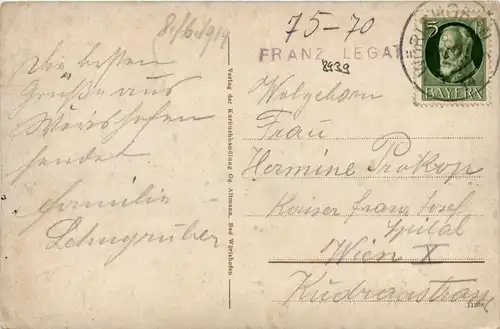 8/6.1914
75-70
FRANZ LEGAT
8939
5
BAYERN
Die besten
Grüße aus
Wörishofen
sendet
Familie
Lehngruber
Verlag der Kurbuchhandlung Gg. Altmann, Bad Wörishofen
Wolgeborn
Frau
Hermine Prokop
Kaiser Franz Josef
Spital
Wien X